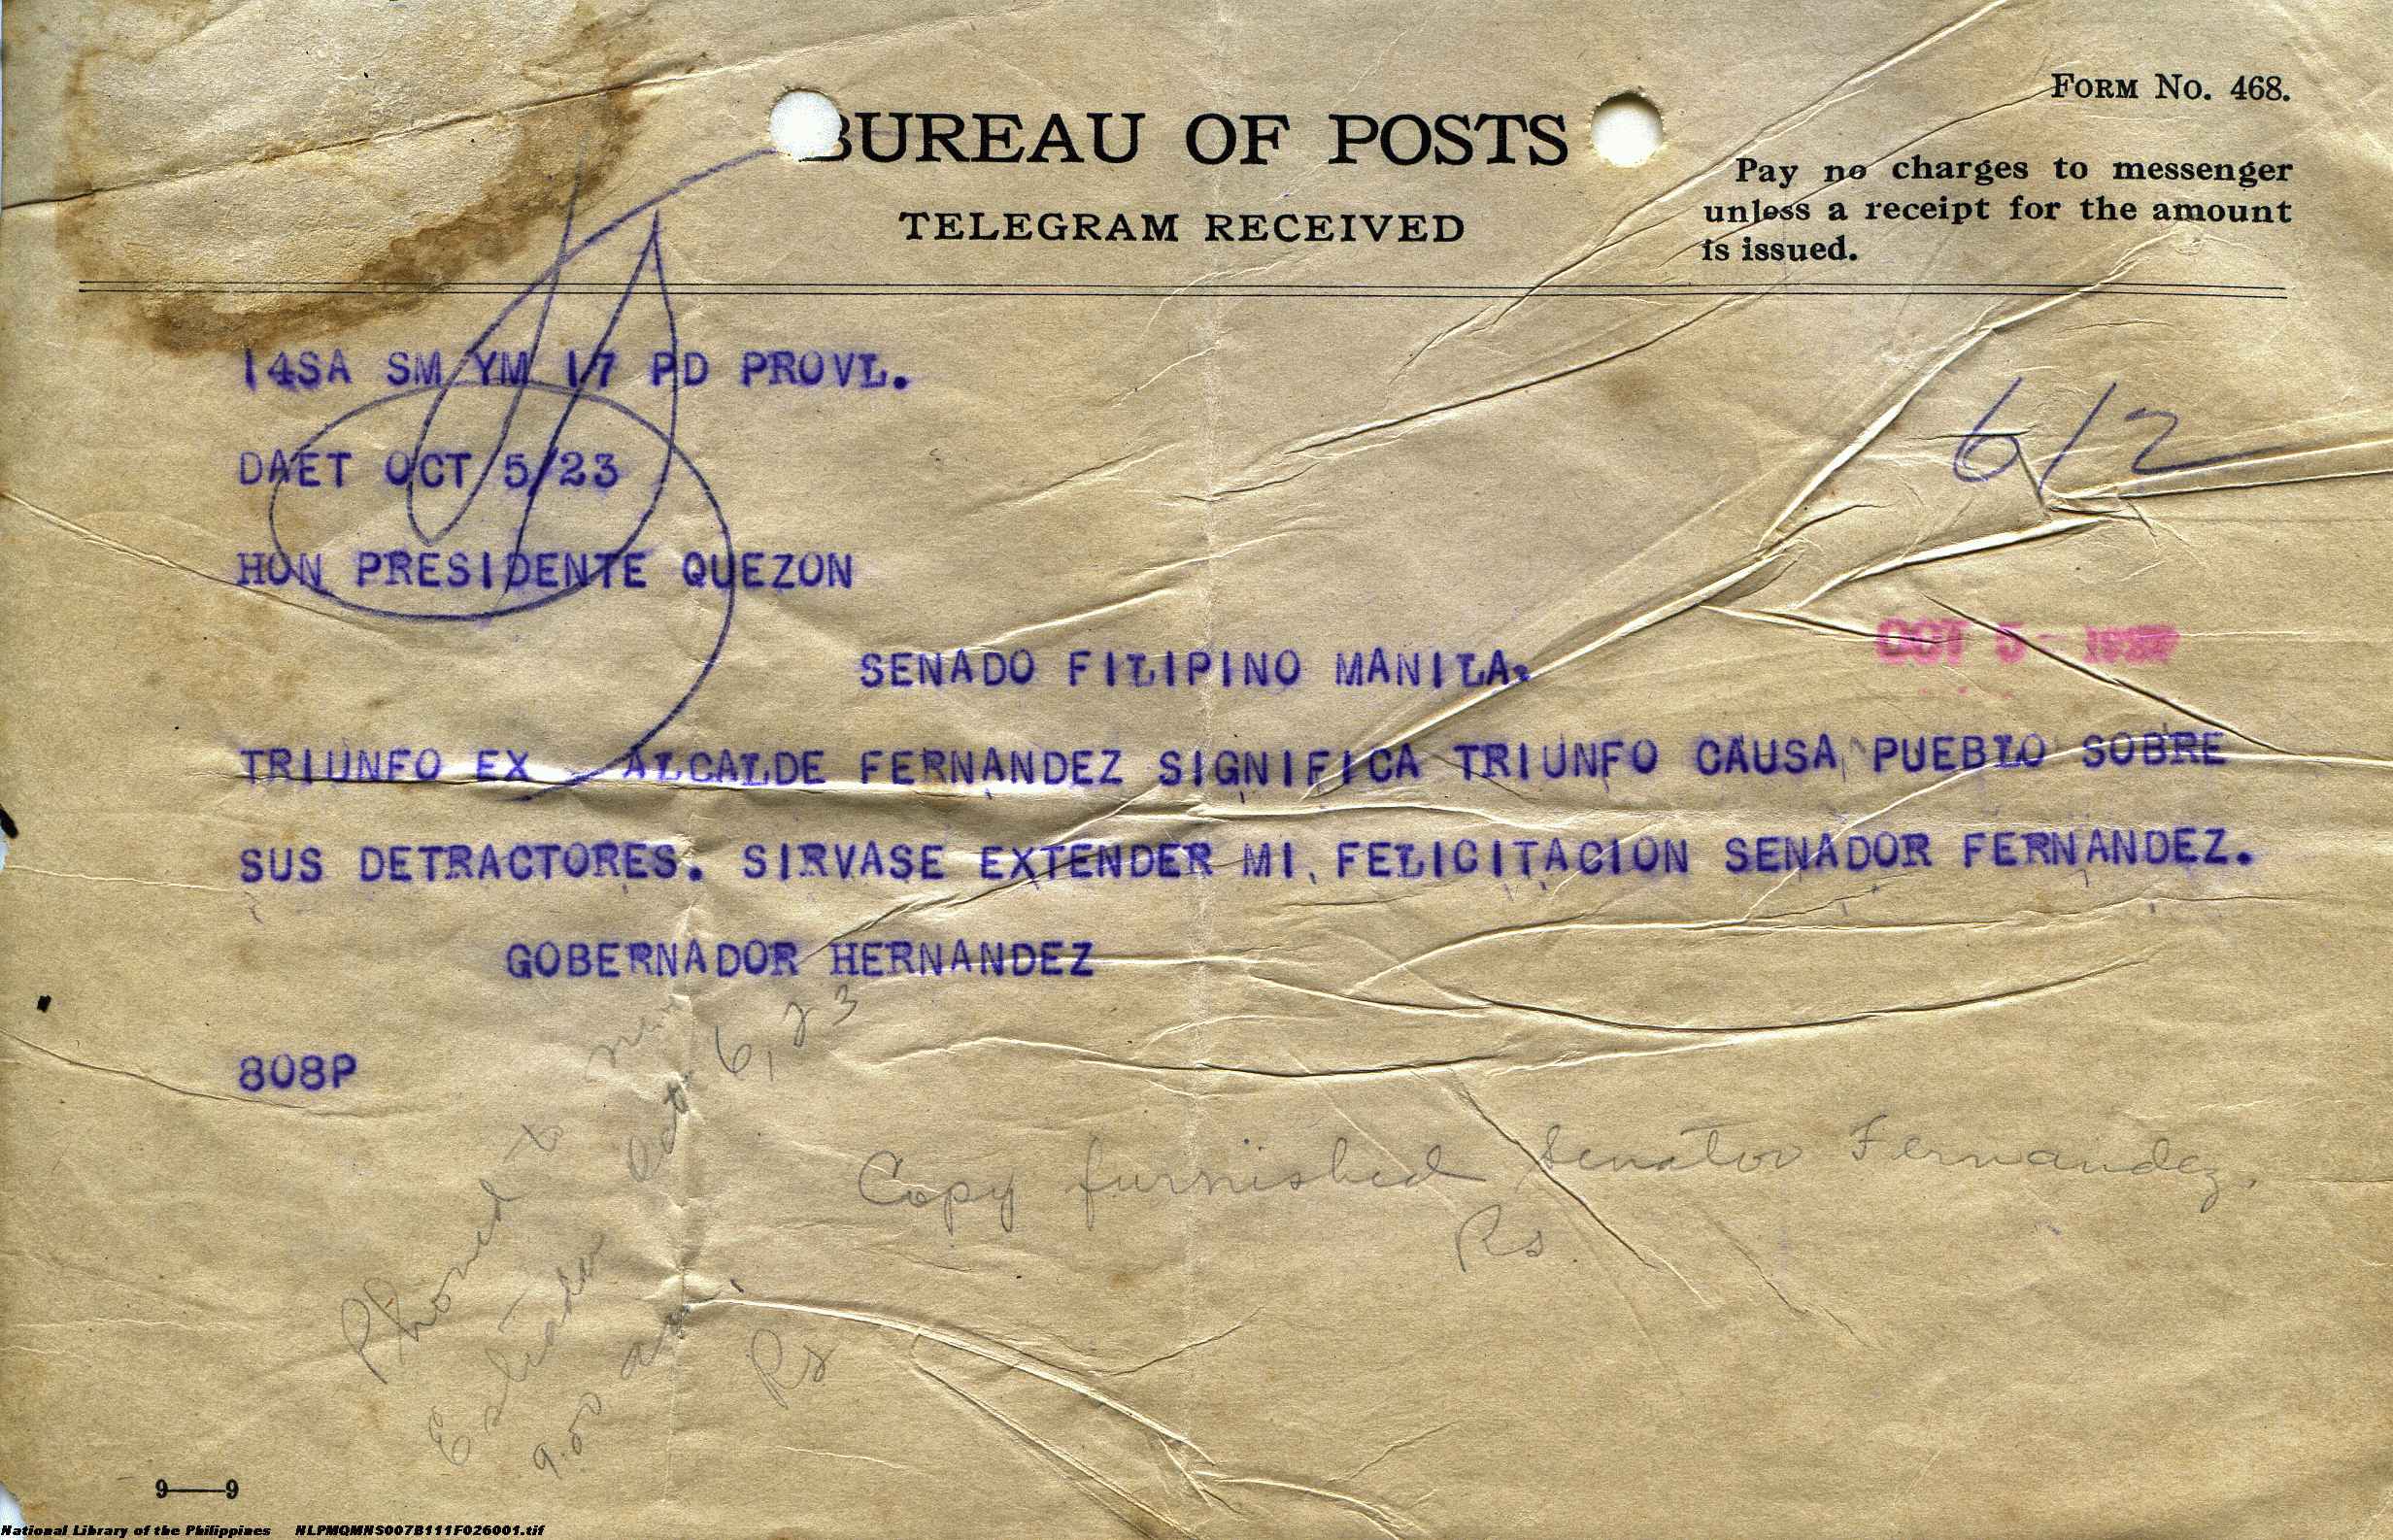 FORM No. 468.
BUREAU OF POSTS
TELEGRAM RECEIVED
Pay no charges to messenger
unless a receipt for the amount
is issued.
14SA SM YM 17 PD PROVL.
612
DAET OCT 5/23
HON PRESIDENTE QUEZON
OCT 5 -
SENADO FILIPINO MANILA.
TRIUNFO EX - ALCALDE FERNANDEZ SIGNIFICA TRIUNFO CAUSA PUEBLO SOBRE
SUS DETRACTORES. SIRVASE EXTENDER MI FELICITACION SENADOR FERNANDEZ.
GOBERNADOR HERNANDEZ
808P
Phoned to
Oct 6, 23
9.50 am.
Rs
Copy furnished Senator Fernandez.
Rs.
9—9
National Library of the Philippines NLPMQMNS007B111F026001.tif